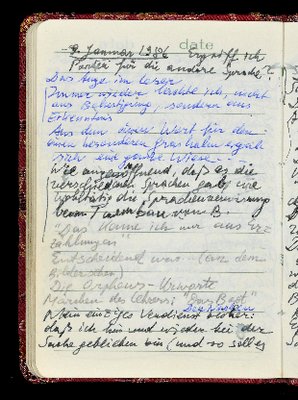 9. Januar 1986 Ergriff ich
date
Partei für die andere Sprache?
Das Auge im Leser
Immer wieder ich, nicht
aus Belustigung, sondern aus
Erkenntnis
Aus dem einen Wort für den
einen besonderen Grashalm ergab
sich eine ganze Wiese
Wie angeöffnend, daß es die
verschiedenen Sprachen gab, wie
wohltätig die Sprachenverwirrung
beim Turmbau von B.
"Das kenne ich nur aus Er-
zählungen"
Entscheidend war (aus dem
Bilder
Die Orpheus-Urworte
Märchen des Lehrers: "Das Bett"
begleiten
Mein einziges Verdienst bisher:
daß ich hin und wieder bei der
Sache geblieben bin (und so soll es